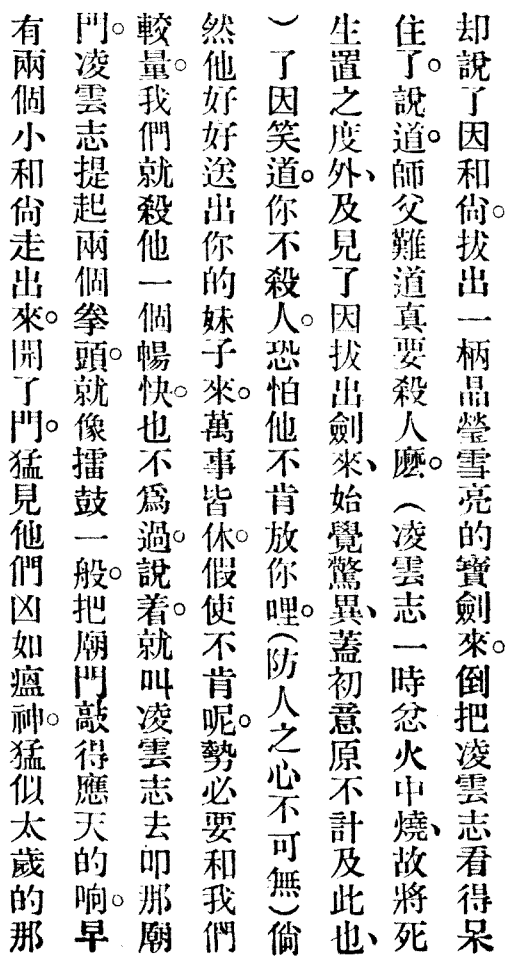 却說了因和尙。拔出一柄晶瑩雪亮的寶劍來。倒把凌雲志看得呆
住了。說道。師父難道真要殺人麽。（凌雲志一時忿火中燒、故將死
生置之度外、及見了因拔出劍來、始覺驚異、蓋初意原不計及此也、
）了因笑道。你不殺人。恐怕他不肯放你哩。（防人之心不可無）倘
然他好好送出你的妹子來。萬事皆休。假使不肯呢。勢必要和我們
較量。我們就殺他一個暢快。也不爲過。說着。就叫凌雲志去叩那廟
門。凌雲志提起兩個拳頭。就像擂鼓一般。把廟門敲得應天的响。早
有兩個小和尙走出來。開了門。猛見他們凶如瘟神。猛似太歲的那